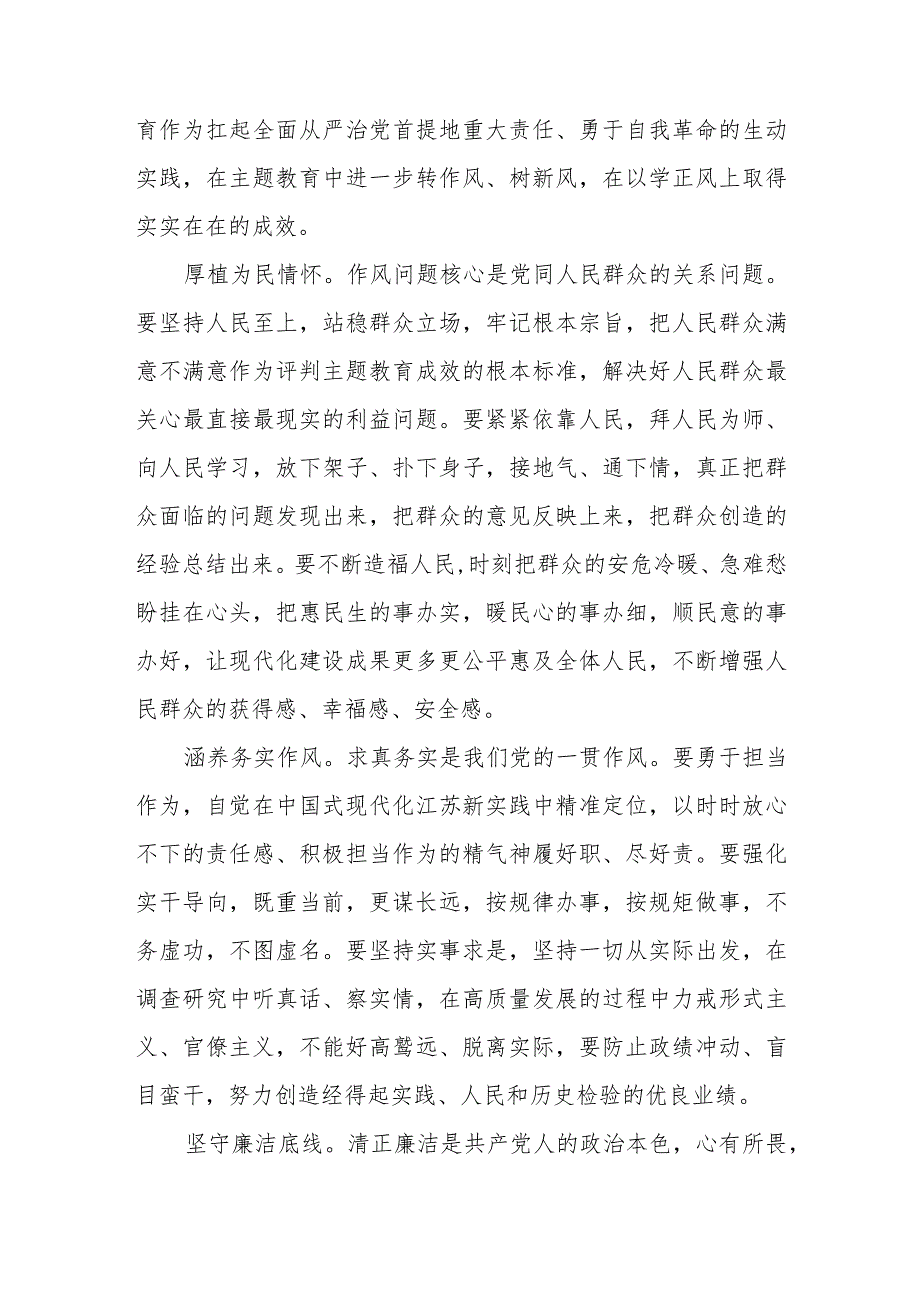 育作为扛起全面从严治党首提地重大责任、勇于自我革命的生动
实践，在主题教育中进一步转作风、树新风，在以学正风上取得
实实在在的成效。
厚植为民情怀。作风问题核心是党同人民群众的关系问题。
要坚持人民至上，站稳群众立场，牢记根本宗旨，把人民群众满
意不满意作为评判主题教育成效的根本标准，解决好人民群众最
关心最直接最现实的利益问题。要紧紧依靠人民，拜人民为师、
向人民学习，放下架子、扑下身子，接地气、通下情，真正把群
众面临的问题发现出来，把群众的意见反映上来，把群众创造的
经验总结出来。要不断造福人民,时刻把群众的安危冷暖、急难愁
盼挂在心头，把惠民生的事办实，暖民心的事办细，顺民意的事
办好，让现代化建设成果更多更公平惠及全体人民，不断增强人
民群众的获得感、幸福感、安全感。
涵养务实作风。求真务实是我们党的一贯作风。要勇于担当
作为，自觉在中国式现代化江苏新实践中精准定位，以时时放心
不下的责任感、积极担当作为的精气神履好职、尽好责。要强化
实干导向，既重当前，更谋长远，按规律办事，按规矩做事，不
务虚功，不图虚名。要坚持实事求是，坚持一切从实际出发，在
调查研究中听真话、察实情，在高质量发展的过程中力戒形式主
义、官僚主义，不能好高鹜远、脱离实际，要防止政绩冲动、盲
目蛮干，努力创造经得起实践、人民和历史检验的优良业绩。
坚守廉洁底线。清正廉洁是共产党人的政治本色，心有所畏，